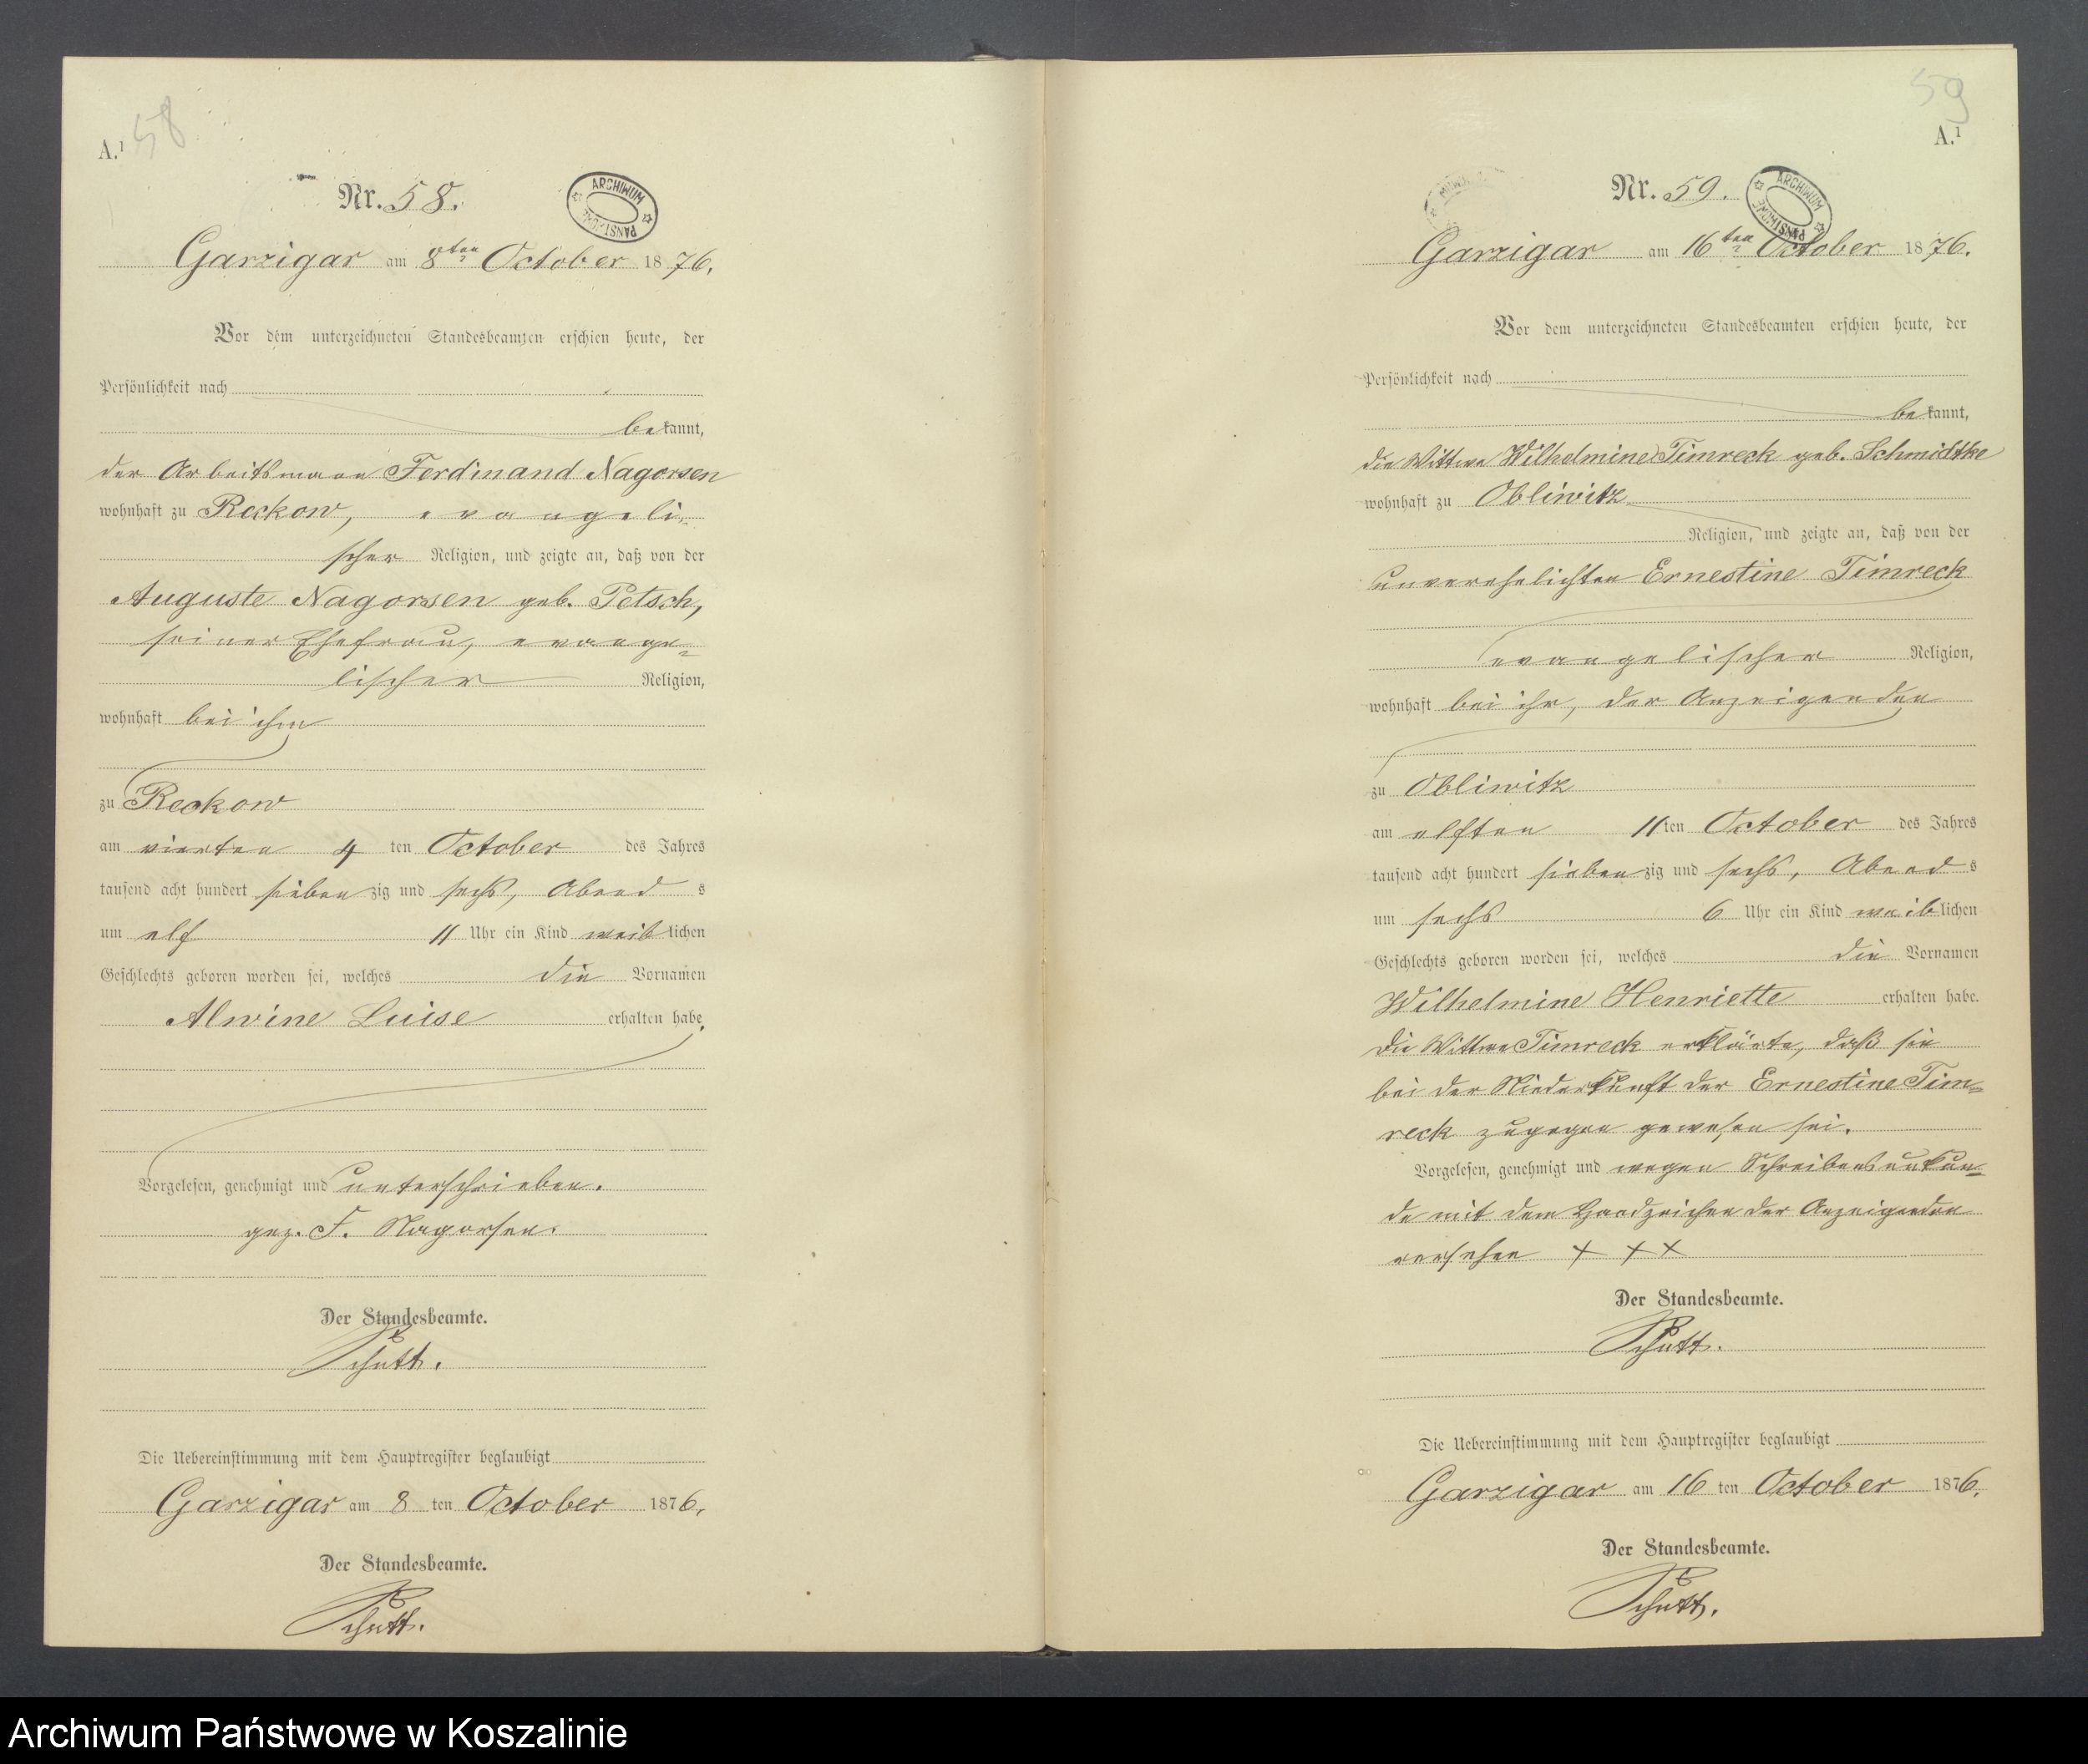 58
A.¹
Nr. 58.
ARCHIWUM PAŃSTWOWE
Garzigar am 8ten October 1876.
Vor dem unterzeichneten Standesbeamten erschien heute, der
Persönlichkeit nach
bekannt,
der Arbeitsmann Ferdinand Nagorsen
wohnhaft zu Reckow, evangeli-
scher Religion, und zeigte an, daß von der
Auguste Nagorsen geb. Petsch,
seiner Ehefrau, evange-
lischer Religion,
wohnhaft bei ihm
zu Reckow
am vierten 4 ten October des Jahres
tausend acht hundert sieben zig und sechs, Abend s
um elf 11 Uhr ein Kind weiblichen
Geschlechts geboren worden sei, welches die Vornamen
Alwine Luise erhalten habe.
Vorgelesen, genehmigt und unterschrieben.
gez. F. Nagorsen.
Der Standesbeamte.
Schutt.
Die Uebereinstimmung mit dem Hauptregister beglaubigt
Garzigar am 8 ten October 1876.
Der Standesbeamte.
Schutt.
59
A.¹
Nr. 59.
ARCHIWUM PAŃSTWOWE
Garzigar am 16ten October 1876.
Vor dem unterzeichneten Standesbeamten erschien heute, der
Persönlichkeit nach
bekannt,
die Wittwe Wilhelmine Timreck geb. Schmidtke
wohnhaft zu Obliwitz
Religion, und zeigte an, daß von der
unverehelichten Ernestine Timreck
evangelischer Religion,
wohnhaft bei ihr, der Anzeigenden
zu Obliwitz
am elften 11 ten October des Jahres
tausend acht hundert sieben zig und sechs, Abend s
um sechs 6 Uhr ein Kind weiblichen
Geschlechts geboren worden sei, welches die Vornamen
Wilhelmine Henriette erhalten habe.
Die Wittwe Timreck erklärte, daß sie
bei der Niederkunft der Ernestine Tim-
reck zugegen gewesen sei.
Vorgelesen, genehmigt und wegen Schreibensunkun-
de mit dem Handzeichen der Anzeigenden
versehen + + +
Der Standesbeamte.
Schutt.
Die Uebereinstimmung mit dem Hauptregister beglaubigt
Garzigar am 16 ten October 1876.
Der Standesbeamte.
Schutt.
Archiwum Państwowe w Koszalinie